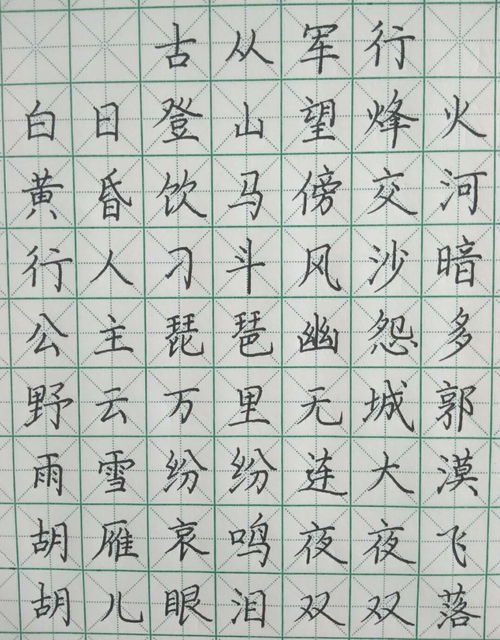 古从军行
白日登山望烽火
黄昏饮马傍交河
行人刁斗风沙暗
公主琵琶幽怨多
野云万里无城郭
雨雪纷纷连大漠
胡雁哀鸣夜夜飞
胡儿眼泪双双落